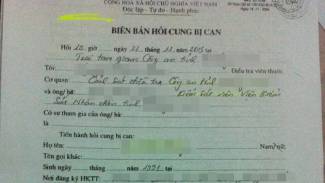 CỘNG HÒA XÃ HỘI CHỦ NGHĨA VIỆT NAM
Độc lập - Tự do - Hạnh phúc
BIÊN BẢN HỎI CUNG BỊ CAN
Hồi 10 giờ ngày 11 - 2015
Trại tạm giam Công an tỉnh
Tôi: Điều tra viên thuộc
Cơ quan Cảnh sát điều tra Công an tỉnh
và ông/bà: Kiểm sát viên Viện Kiểm
Sát Nhân dân tỉnh
Có sự tham gia của ông/bà:
Tiến hành hỏi cung bị can:
Họ tên: Nam/nữ:
Tên gọi khác:
Sinh ngày tháng năm 1991
Nơi đăng ký HKTT: